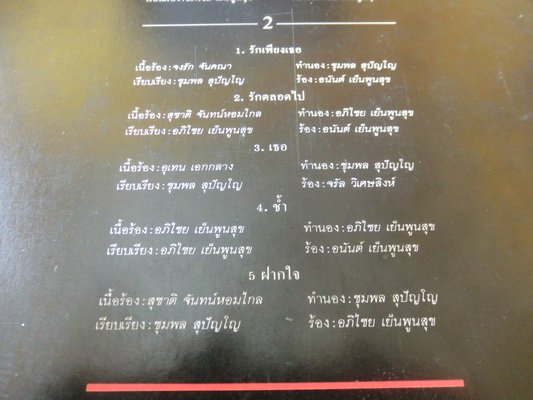 2
1. รักเพียงเธอ
เนื้อร้อง:จงรัก จันคณา ทำนอง:ชุมพล สุปัญโญ
เรียบเรียง:ชุมพล สุปัญโญ ร้อง:อนันต์ เย็นพูนสุข
2. รักตลอดไป
เนื้อร้อง:สุชาติ จันทน์หอมไกล ทำนอง:อภิไชย เย็นพูนสุข
เรียบเรียง:อภิไชย เย็นพูนสุข ร้อง:อนันต์ เย็นพูนสุข
3. เธอ
เนื้อร้อง:อุเทน เอกกลาง ทำนอง:ชุมพล สุปัญโญ
เรียบเรียง:ชุมพล สุปัญโญ ร้อง:จรัล วิเศษสิงห์
4. ช้ำ
เนื้อร้อง:อภิไชย เย็นพูนสุข ทำนอง:อภิไชย เย็นพูนสุข
เรียบเรียง:อภิไชย เย็นพูนสุข ร้อง:อนันต์ เย็นพูนสุข
5 ฝากใจ
เนื้อร้อง:สุชาติ จันทน์หอมไกล ทำนอง:ชุมพล สุปัญโญ
เรียบเรียง:ชุมพล สุปัญโญ ร้อง:อภิไชย เย็นพูนสุข